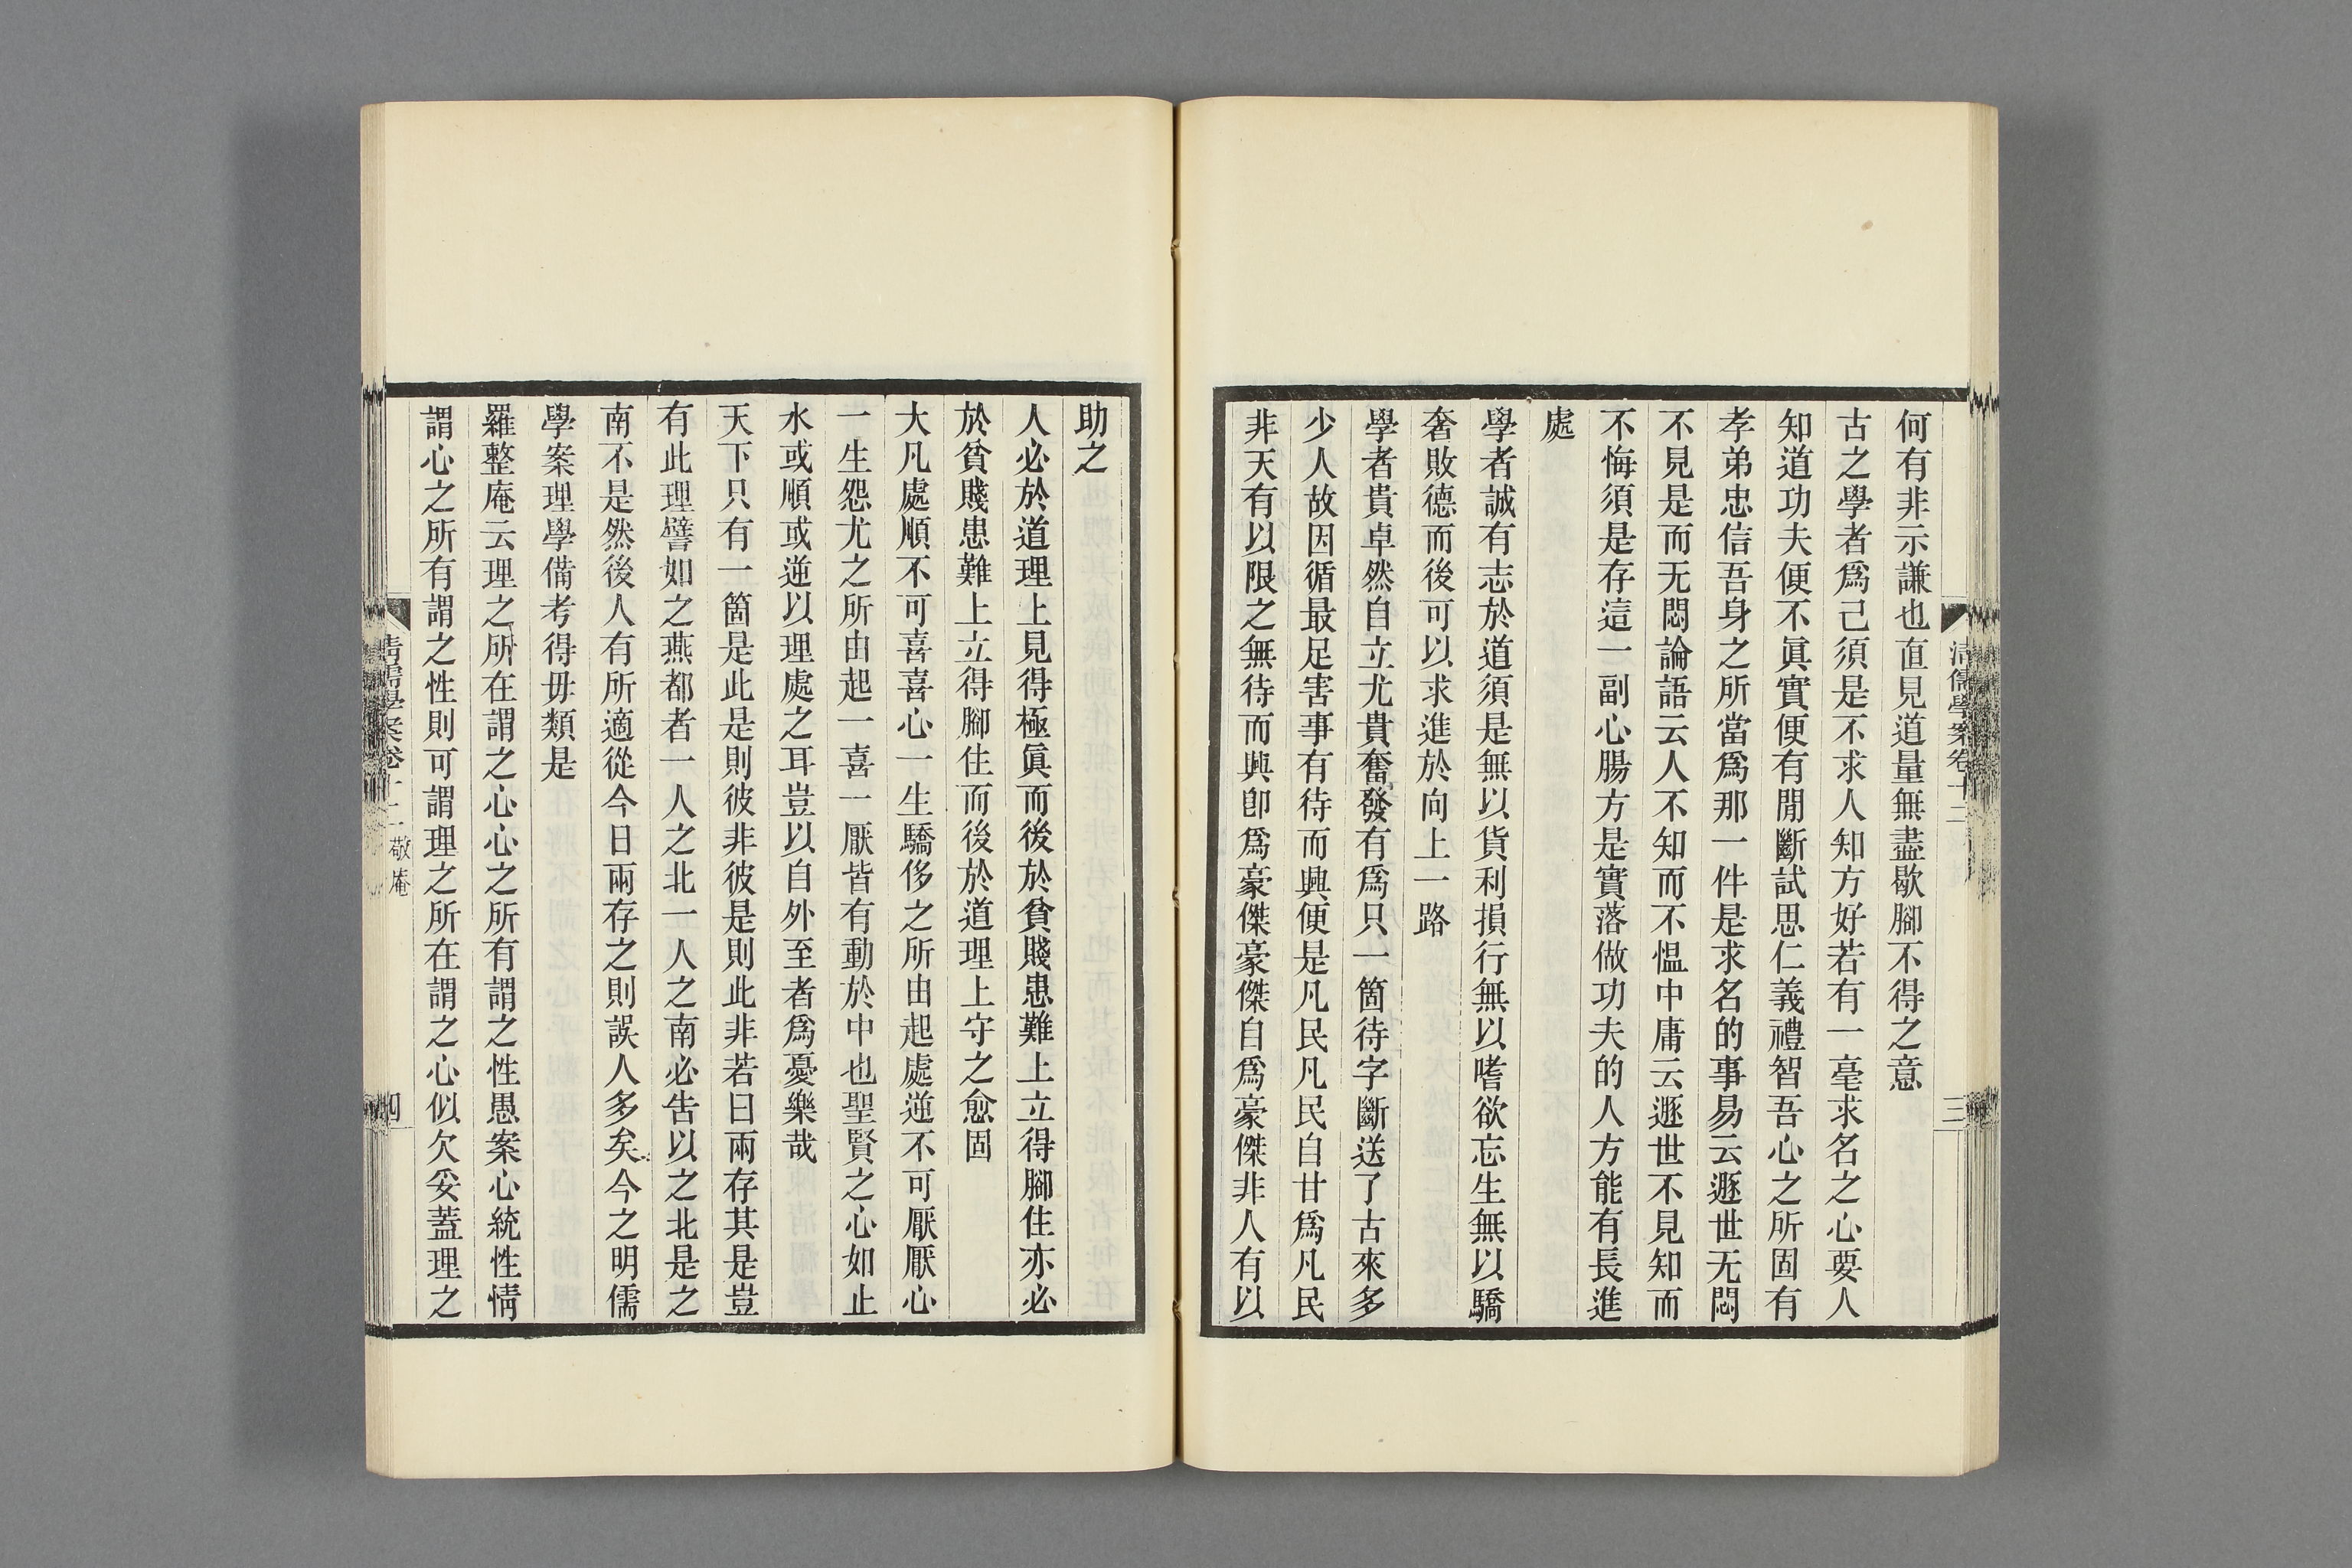 清儒學案卷十二
三
何有非示謙也直見道量無盡歇腳不得之意
古之學者爲己須是不求人知方好若有一毫求名之心要人
知道功夫便不眞實便有閒斷試思仁義禮智吾心之所固有
孝弟忠信吾身之所當爲那一件是求名的事易云遯世无悶
不見是而无悶論語云人不知而不慍中庸云遯世不見知而
不悔須是存這一副心腸方是實落做功夫的人方能有長進
處
學者誠有志於道須是無以貨利損行無以嗜欲忘生無以驕
奢敗德而後可以求進於向上一路
學者貴卓然自立尤貴奮發有爲只一箇待字斷送了古來多
少人故因循最足害事有待而興便是凡民凡民自甘爲凡民
非天有以限之無待而興卽爲豪傑豪傑自爲豪傑非人有以
助之
人必於道理上見得極眞而後於貧賤患難上立得腳住亦必
於貧賤患難上立得腳住而後於道理上守之愈固
大凡處順不可喜喜心一生驕侈之所由起處逆不可厭厭心
一生怨尤之所由起一喜一厭皆有動於中也聖賢之心如止
水或順或逆以理處之耳豈以自外至者爲憂樂哉
天下只有一箇是此是則彼非彼是則此非若曰兩存其是豈
有此理譬如之燕都者一人之北一人之南必告以之北是之
南不是然後人有所適從今日兩存之則誤人多矣今之明儒
學案理學備考得毋類是
羅整庵云理之所在謂之心心之所有謂之性愚案心統性情
謂心之所有謂之性則可謂理之所在謂之心似欠妥蓋理之
清儒學案卷十二 敬庵
四